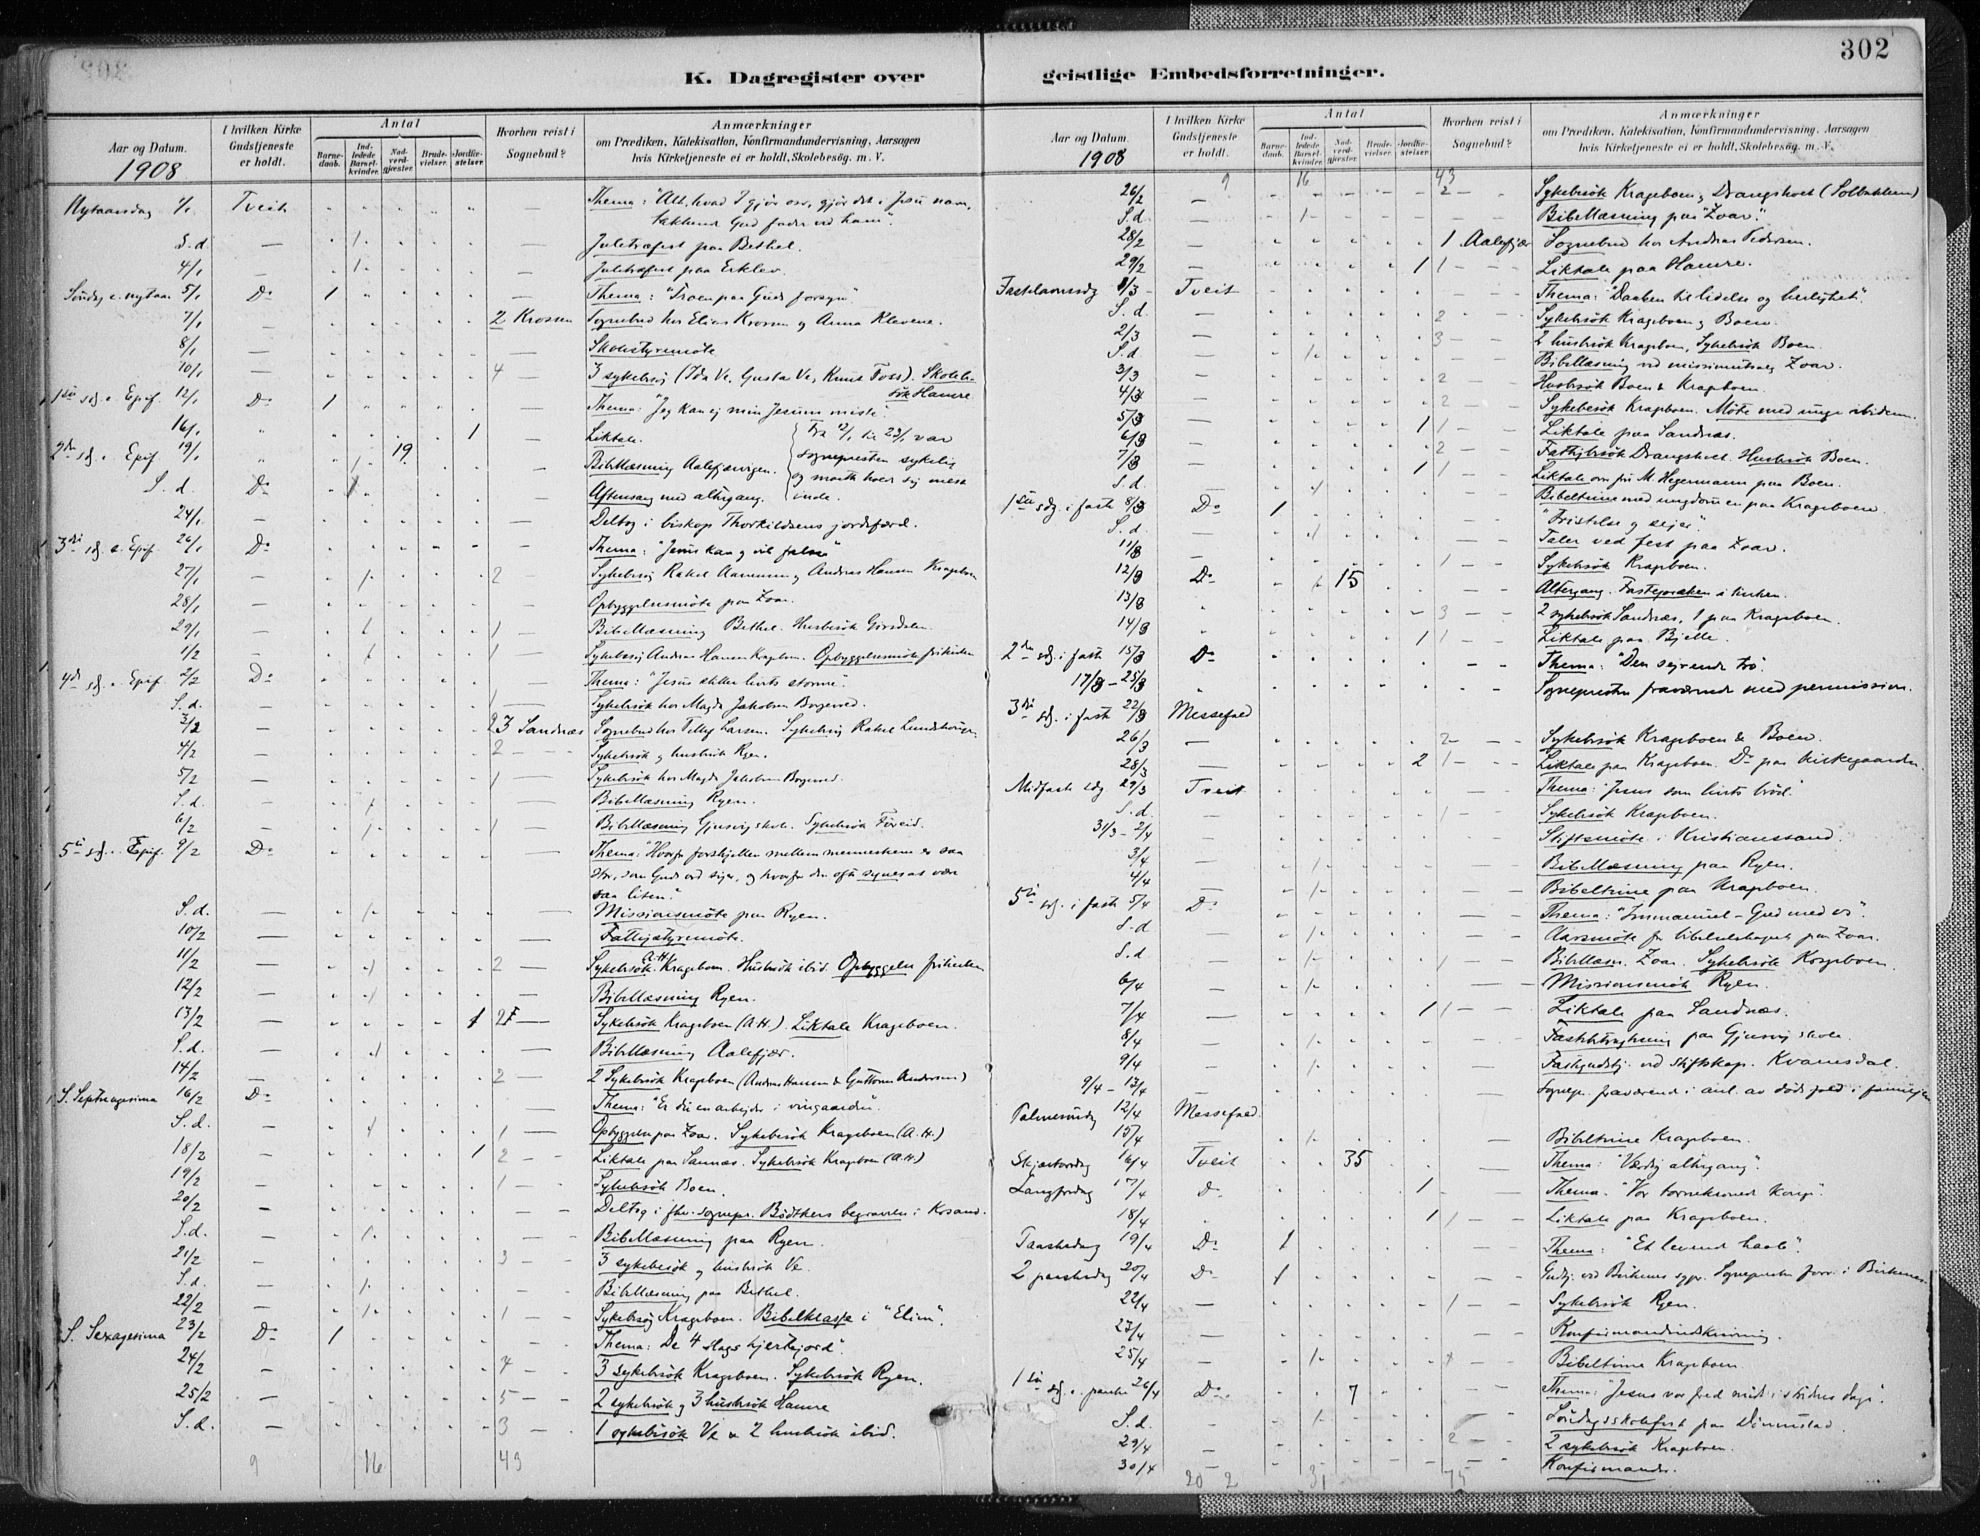 302
K. Dagregister over
geistlige Embedsforretninger.
Aar og Datum.
1908
I hvilken Kirke Gudstjeneste er holdt.
Antal
Barne-daab.
Ind-ledede Barsel-kvinder.
Nad-verd-gjester.
Brude-vielser.
Jordfæ-stelser.
Hvorhen reist i Sognebud?
Anmærkninger
om Prædiken, Katekisation, Konfirmandundervisning, Aarsagen
hvis Kirketjeneste ei er holdt, Skolebesøg. m. V.
Nytaarsdag 1/1 Tveit Thema: "Alt, hvad I gjör osv, gjör det i Jesu navn,
takkende Gud fader ved ham".
S.d. — 1. — Juletræfest paa Bethel.
4/1 — 1. — Juletræfest paa Erklev.
Söndag e. nytaar 5/1 Do 1 — Thema: "Troen paa Guds forsyn"
7/1 — 2 Krossen Sognebud hos Elias Krossen og Anna Klevene.
8/1 — Skolestyremöte
10/1 — 4 — 3 sykebesög (Ida Ve, Gusta Ve, Knut Foss). Skolebe-
sök Hamre
1ste sdg. e. Epif. 12/1 Do 1 Thema: "Jeg kan ej min Jesum miste".
16/1 1 — Liktale. Fra 12/1 til 23/1 var
2den sdg e. Epif 19/1 19 Bibellæsning Aalefjærvigen. sognepresten sykelig
S. d. Do — Aftensang med altergang. og maatte holde sig mest inde.
24/1 — Deltog i biskop Thorkildsens jordsfærd.
3die sdg. e. Epif. 26/1 Do Thema: "Jesus kan og vil frelse"
27/1 — 1. 2 — Sykebesög Rakel Aanensen og Andreas Hansen Krageboen
28/1 — Opbyggelsesmöte paa Zoar.
29/1 — 1 1 — Bibellæsning Bethel. Husbesök Girsdalen.
1/2 — 1 1 — Sykebesög Andreas Hansen Krageboen. Opbyggelsesmöte frikirken
4de sdg. e. Epif. 2/2 Do Thema: "Jesus stiller livets storme".
S.d. 1 — Sykebesök hos Magda Jakobsen Borgeved.
3/2 — 23 Sandnæs Sognebud hos Tellef Larsen. Sykebesög Rakel Lundehaugen
4/2 — 2 — Sykebesök og husbesök Ryen.
5/2 — 1 — Sykebesök hos Magda Jakobsen Borgeved.
S.d. — 1 Bibellæsning Ryen.
6/2 — 1. 1 — Bibellæsning Gjusvig skole. Sykebesök Föreid.
5te sdg. e. Epif. 9/2 Do — Thema: "Hvorfor forskjellen mellem menneskene er saa
stor, som Guds ord siger, og hvorfor den ofte synes at være
saa liten."
S.d. — 1. — Missionsmöte paa Ryen.
10/2 — — Fattigstyremöte.
11/2 — 1 2 — Sykebesök A.H. Krageboen. Husbesök ibid. Opbyggelse frikirken
12/2 — 1 — Bibellæsning Ryen.
13/2 — 1 2 — Sykebesök Krageboen (A.H.). Liktale Krageboen.
S.d. — 1 — Bibellæsning Aalefjær.
14/2 — 2 — 2 Sykebesök Krageboen (Andreas Hansen & Guttorm Andersen)
S. Septuagesima 16/2 Do — Thema: "Er du en arbejder i vingaarden".
S.d. — 1 1 — Opbyggelse paa Zoar. Sykebesök Krageboen (A.H.)
18/2 — 1 2 — Liktale paa Sannæs. Sykebesök Krageboen (A.H.)
19/2 — 1 — Sykebesök Boen.
20/2 — Deltog i fhv. sognepr. Bödtkers begravelse i Krsand.
S.d. — 1. — Bibellæsning paa Ryen.
21/2 — 3 — 3 sykebesök og husbesök Ve.
S.d. — 1. Bibellæsning paa Bethel.
22/2 — 1. 1 — Sykebesög Krageboen. Bibelklasse i "Elim".
S. Sexagesima 23/2 Do 1 Thema: De 4 slags hjertejord".
24/2 — 4 — 3 sykebesök Krageboen. Sykebesök Ryen.
25/2 — 5 — 2 sykebesök og 3 husbesök Hamre
S.d. — 3 — 1 sykebesök Ve & 2 husbesök ibid.
9 16 43
Aar og Datum.
1908
I hvilken Kirke Gudstjeneste er holdt.
Antal
Barne-daab.
Ind-ledede Barsel-kvinder.
Nad-verd-gjester.
Brude-vielser.
Jordfæ-stelser.
Hvorhen reist i Sognebud?
Anmærkninger
om Prædiken, Katekisation, Konfirmandundervisning, Aarsagen
hvis Kirketjeneste ei er holdt, Skolebesøg. m. V.
9 16 43
26/2 — 2 — Sykebesök Krageboen og Drangsholt (Solbakken)
S.d. — 1 Bibellæsning paa "Zoar".
28/2 — 1 Aalefjær Sognebud hos Andreas Pedersen.
29/2 — 1 1 — Liktale paa Hamre.
Fastelavnssdg 1/3 Tveit Thema: "Daaben til lidelse og herlighet".
S.d. — 2 — Sykebesök Krageboen og Boen.
2/3 — 3 — 2 husbesök Krageboen, Sykebesök Boen.
S.d — 1. Bibellæsning ved missionsutsalg Zoar.
3/3 — 2 — Husbesök Boen & Krageboen.
4/3 — 2 — Sykebesök Krageboen. Möte med unge ibidem.
5/3 — 1 1 — Liktale paa Sandnæs.
6/3 — 2 — Fattigbesök Drangsholt. Husbesök Boen.
7/3 — 1 1 — Liktale over fru M. Hegermann paa Boen.
S.d. — 1 Bibeltime med ungdommen paa Krageboen.
1ste sdg. i faste 8/3 Do 1 "Fristelse og sejer".
S.d. — 1 Taler ved fest paa Zoar.
11/3 1 — Sykebesök Krageboen.
12/3 Do 1. 15 Altergang. Fasteprædken i kirken.
13/3 3 — 2 sykebesök Sandnæs, 1 paa Krageboen.
14/3 1 1 — Liktale paa Bjelle.
2den sdg. i faste 15/3 Do Thema: "Den sejrende tro".
17/3 – 25/3 Sognepresten fraværende med permission.
3die sdg. i faste 22/3 Messefald
26/3 — 2 — Sykebesök Krageboen & Boen.
28/3 — 2 1 — Liktale paa Krageboen. Do paa kirkegaarden.
Midfaste sdg. 29/3 Tveit Thema: "Jesus som livets bröd."
S.d. 1 — Sykebesök Krageboen.
31/3 – 2/4 Stiftsmöte i Kristianssand.
3/4 — 1. — Bibellæsning paa Ryen.
4/4 — 1. — Bibeltime paa Krageboen.
5te sdg. i faste 5/4 Do Thema: "Immanuel – Gud med os".
S.d — 1. — Aarsmöte for bibelselskapet paa Zoar.
S.d — 1. 1 — Bibellæsn. Zoar. Sykebesök Krageboen.
6/4 — 1. — Missionsmöte Ryen.
7/4 — 1 1 — Liktale paa Sandnæs.
8/4 — 1. Fastebetragtning paa Gjusvig skole.
9/4 — 1. Fastegudstj. ved stiftskap. Kvarnsdal.
9/4 – 13/4 Sognepr. fraværende i anl. av dödsfald i familjen
Palmesöndag 12/4 Messefald.
15/4 — 1. — Bibeltime Krageboen.
Skjærtorsdag 16/4 Tveit 35 Thema: "Værdig altergang".
Langfredag 17/4 Do 1 Thema: "Vor tornekronede konge".
18/4 1 1 — Liktale paa Krageboen.
Paaskedag 19/4 Do 1 Thema: "Et levende haab".
2 paaskedag 20/4 Do 1
22/4 — 1 — Sykebesök Ryen.
23/4 — Konfirmandindskrivning.
25/4 — 1. Bibeltime Krageboen.
1ste sdg. e. paaske 26/4 Do 7 Thema: "Jesus vor fred midt i stridens dage".
S.d. — 1 Söndagsskolefest paa Dönnestad.
29/4 — 2 — 2 sykebesök Krageboen.
30/4 — Konfirmander.
20 2 31 75